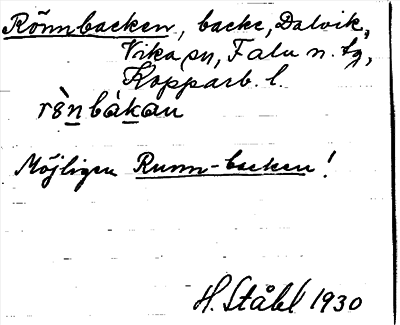 Rönnbacken, backe, Dalvik,
Vika sn, Falu n. tg,
Kopparb. l.
rènbákan
Möjligen Runn-backen!
H. Ståhl 1930